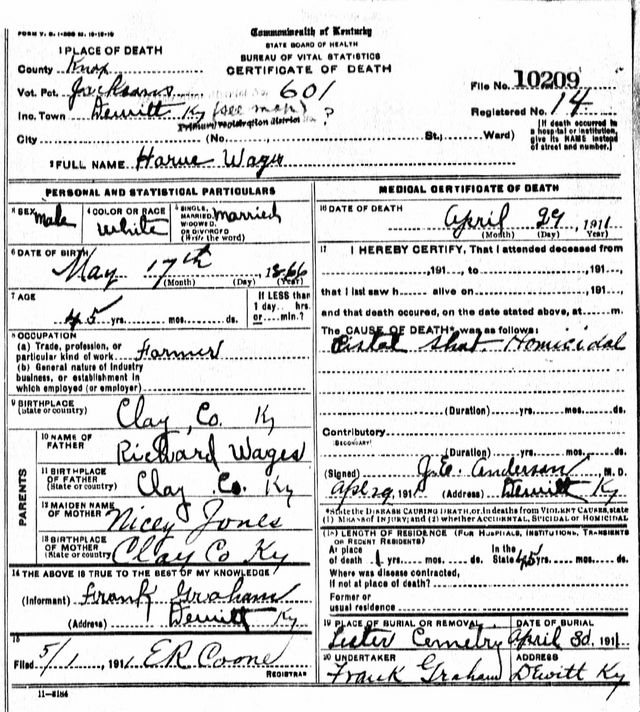 FORM V. S. 1-
Commonwealth of Kentucky
STATE BOARD OF HEALTH
BUREAU OF VITAL STATISTICS
CERTIFICATE OF DEATH
1 PLACE OF DEATH
County Knox
Vot. Pct. Jacksons 601
File No. 10209
Inc. Town Dewitt Ky (see map) ?
Primary registration district
Registered No. 14
City (No. St.; Ward)
[If death occurred in a hospital or institution, give its NAME instead of street and number.]
2 FULL NAME Harve Wages
PERSONAL AND STATISTICAL PARTICULARS
3 SEX male
4 COLOR OR RACE White
5 SINGLE, MARRIED, WIDOWED, OR DIVORCED (Write the word) married
6 DATE OF BIRTH
May 17th, 1866
(Month) (Day) (Year)
7 AGE
45 yrs. mos. ds.
If LESS than 1 day... hrs. or... min.?
8 OCCUPATION
(a) Trade, profession, or particular kind of work Farmer
(b) General nature of industry business, or establishment in which employed (or employer)
9 BIRTHPLACE
(State or country) Clay Co. Ky
PARENTS
10 NAME OF FATHER Richard Wages
11 BIRTHPLACE OF FATHER (State or country) Clay Co. Ky
12 MAIDEN NAME OF MOTHER Nicey Jones
13 BIRTHPLACE OF MOTHER (State or country) Clay Co Ky
14 THE ABOVE IS TRUE TO THE BEST OF MY KNOWLEDGE
(Informant) Frank Graham
(Address) Dewitt Ky
15
Filed 5/1, 1911 E R Coone
REGISTRAR
11-8184
MEDICAL CERTIFICATE OF DEATH
16 DATE OF DEATH
April 29, 1911
(Month) (Day) Year)
17 I HEREBY CERTIFY, That I attended deceased from
,191 , to ,191 ,
that I last saw h alive on ,191 ,
and that death occured, on the date stated above, at m.
The CAUSE OF DEATH* was as follows:
Pistol shot. Homicidal
(Duration) yrs. mos. ds.
Contributory
(SECONDARY)
(Duration) yrs. mos. ds.
(Signed) J. E. Anderson, M. D.
Apl 29, 1911 (Address) Dewitt Ky
*State the DISEASE CAUSING DEATH, or, in deaths from VIOLENT CAUSES, state
(1) MEANS of INJURY; and (2) whether ACCIDENTAL, SUICIDAL or HOMICIDAL
(18) LENGTH OF RESIDENCE (FOR HOSPITALS, INSTITUTIONS, TRANSIENTS OR RECENT RESIDENTS)
At place of death yrs. mos. ds. In the State 45 yrs. mos. ds.
Where was disease contracted,
if not at place of death?
Former or
usual residence
19 PLACE OF BURIAL OR REMOVAL DATE OF BURIAL
Lister Cemetry April 3d, 1911
20 UNDERTAKER ADDRESS
Frank Graham Dewitt Ky